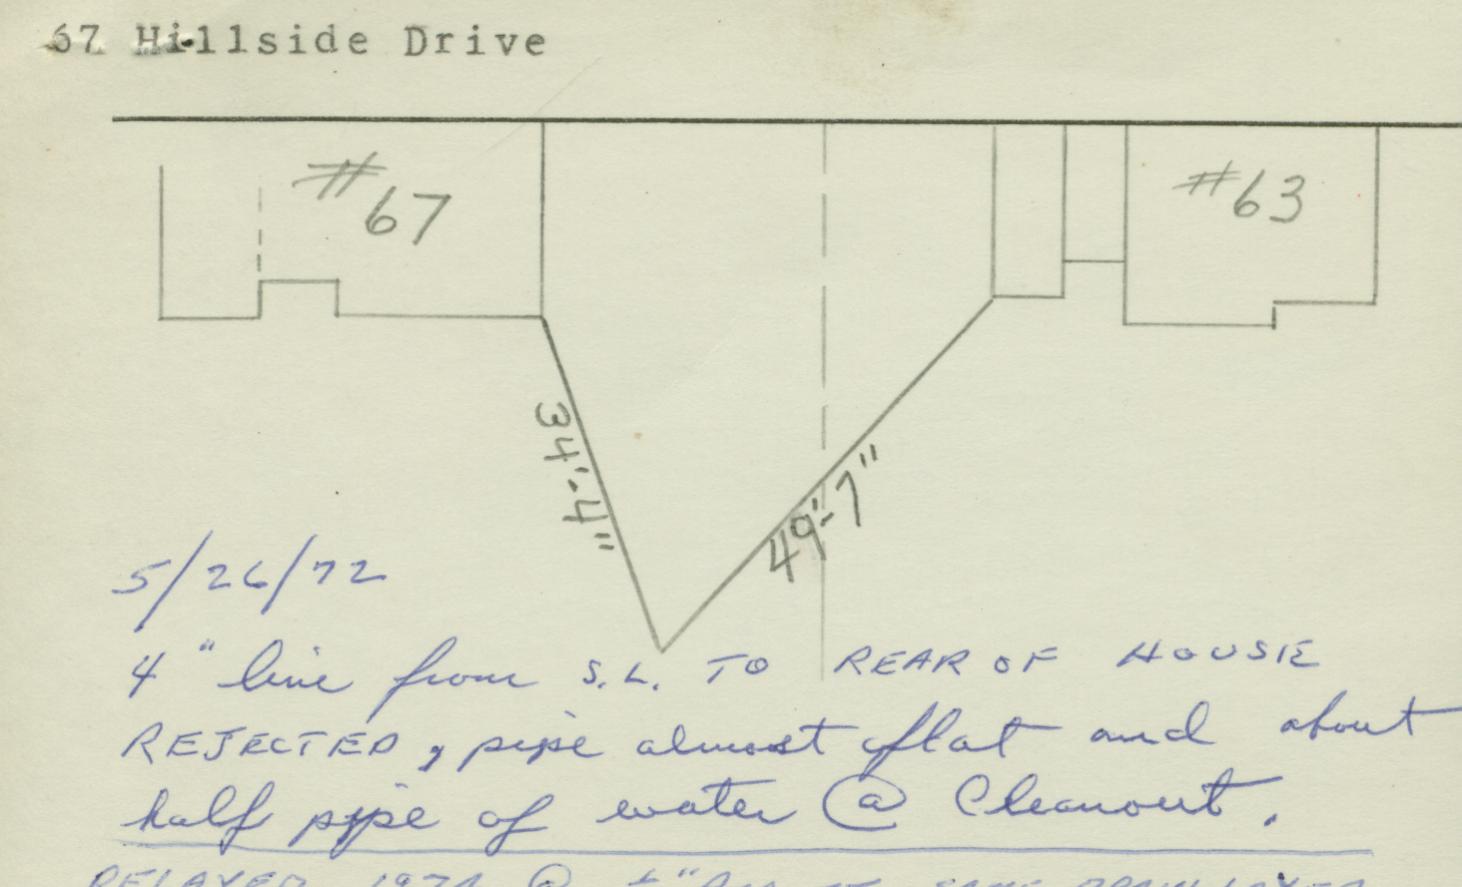 67 Hillside Drive
#67
#63
34'-4"
49'-7"
5/26/72
4" line from S.L. TO REAR OF HOUSE
REJECTED, pipe almost flat and about
half pipe of water @ Cleanout.
RELAYED @